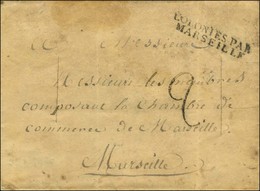 COLONIES PAR
MARSEILLE
A Messieurs
Messieurs les membres
composant la Chambre de
commerce de Marseille
Marseille